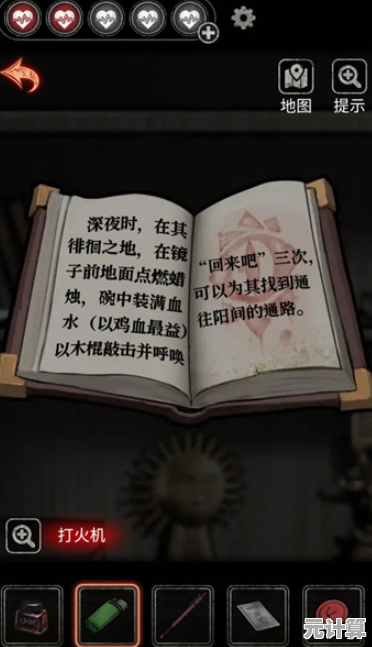 地图
提示
深夜时，在其
徘徊之地，在镜
子前地面点燃蜡
烛，碗中装满血
水（以鸡血最益）
以木棍敲击并呼唤
“回来吧”三次，
可以为其找到通
往阳间的通路。
打火机
元计算